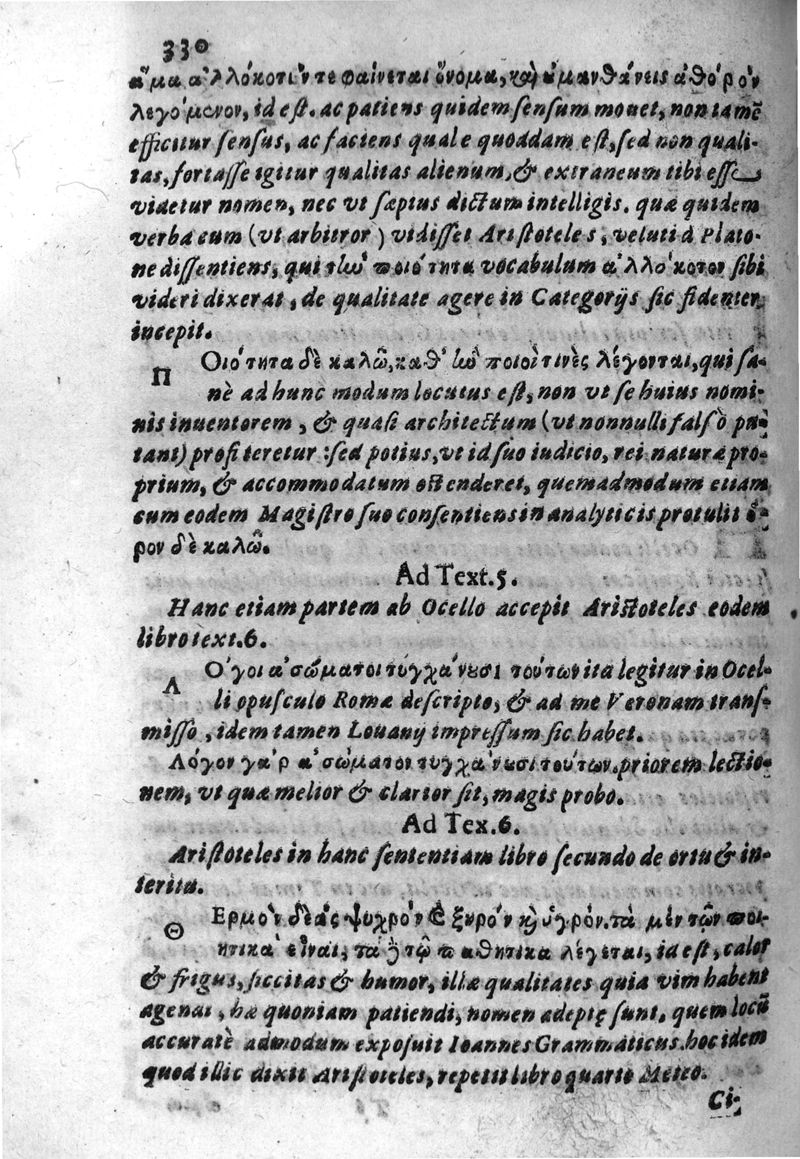 330
ἅμα ἀλλόκοτόν τε φαίνεται ὄνομα, καὶ ἀμανθάνεις ἀθόρον
λεγόμενον, id est. ac patiens quidem sensum mouet, non tamē
efficitur sensus, ac faciens quale quoddam est, sed non quali-
tas, fortasse igitur qualitas alienum, & extraneum tibi esse
videtur nomen, nec vt sæpius dictum intelligis. quæ quidem
verba cum (vt arbitror) vidisset Aristoteles, veluti à Plato-
ne dissentiens, qui τlὼ ποιότητα vocabulum ἀλλόκοτον sibi
videri dixerat, de qualitate agere in Categorijs sic fidenter
incepit.
Ποιότητα δὲ καλῶ, καθ' ἣν ποιοί τινὲς λέγονται, qui sa-
nè ad hunc modum locutus est, non vt se huius nomi-
nis inuentorem, & quasi architectum (vt nonnulli falsò pu-
tant) profiteretur: sed potius, vt id suo iudicio, rei natura pro-
prium, & accommodatum ostenderet, quemadmodum etiam
cum eodem Magistro suo consentiens in analyticis protulit ὅ-
ρον δὲ καλῶ.
Ad Text. 5.
Hanc etiam partem ab Ocello accepit Aristoteles eodem
libro text. 6.
Λόγοι ἀσώματοι τυγχάνουσι τούτων ita legitur in Ocel-
li opusculo Romæ descripto, & ad me Veronam trans-
misso, idem tamen Louanij impressum sic habet.
Λόγον γάρ ἀσώματον τυγχάνουσι τούτων. priorem lectio-
nem, vt quæ melior & clarior sit, magis probo.
Ad Tex. 6.
Aristoteles in hanc sententiam libro secundo de ortu & in-
teritu.
Θερμὸν δὲ καὶ ψυχρὸν καὶ ξηρὸν καὶ ὑγρόν. τὰ μὲν τῷ ποι-
ητικὰ εἶναι, τὰ δὲ τῷ παθητικὰ λέγεται, id est, calor
& frigus, siccitas & humor, illæ qualitates quia vim habent
agendi, hæ quoniam patiendi, nomen adeptę sunt. quem locū
accuratè admodum exposuit Ioannes Grammaticus. hoc idem
quod illic dixit Aristoteles, repetit libro quarto Meteo.
Ci-